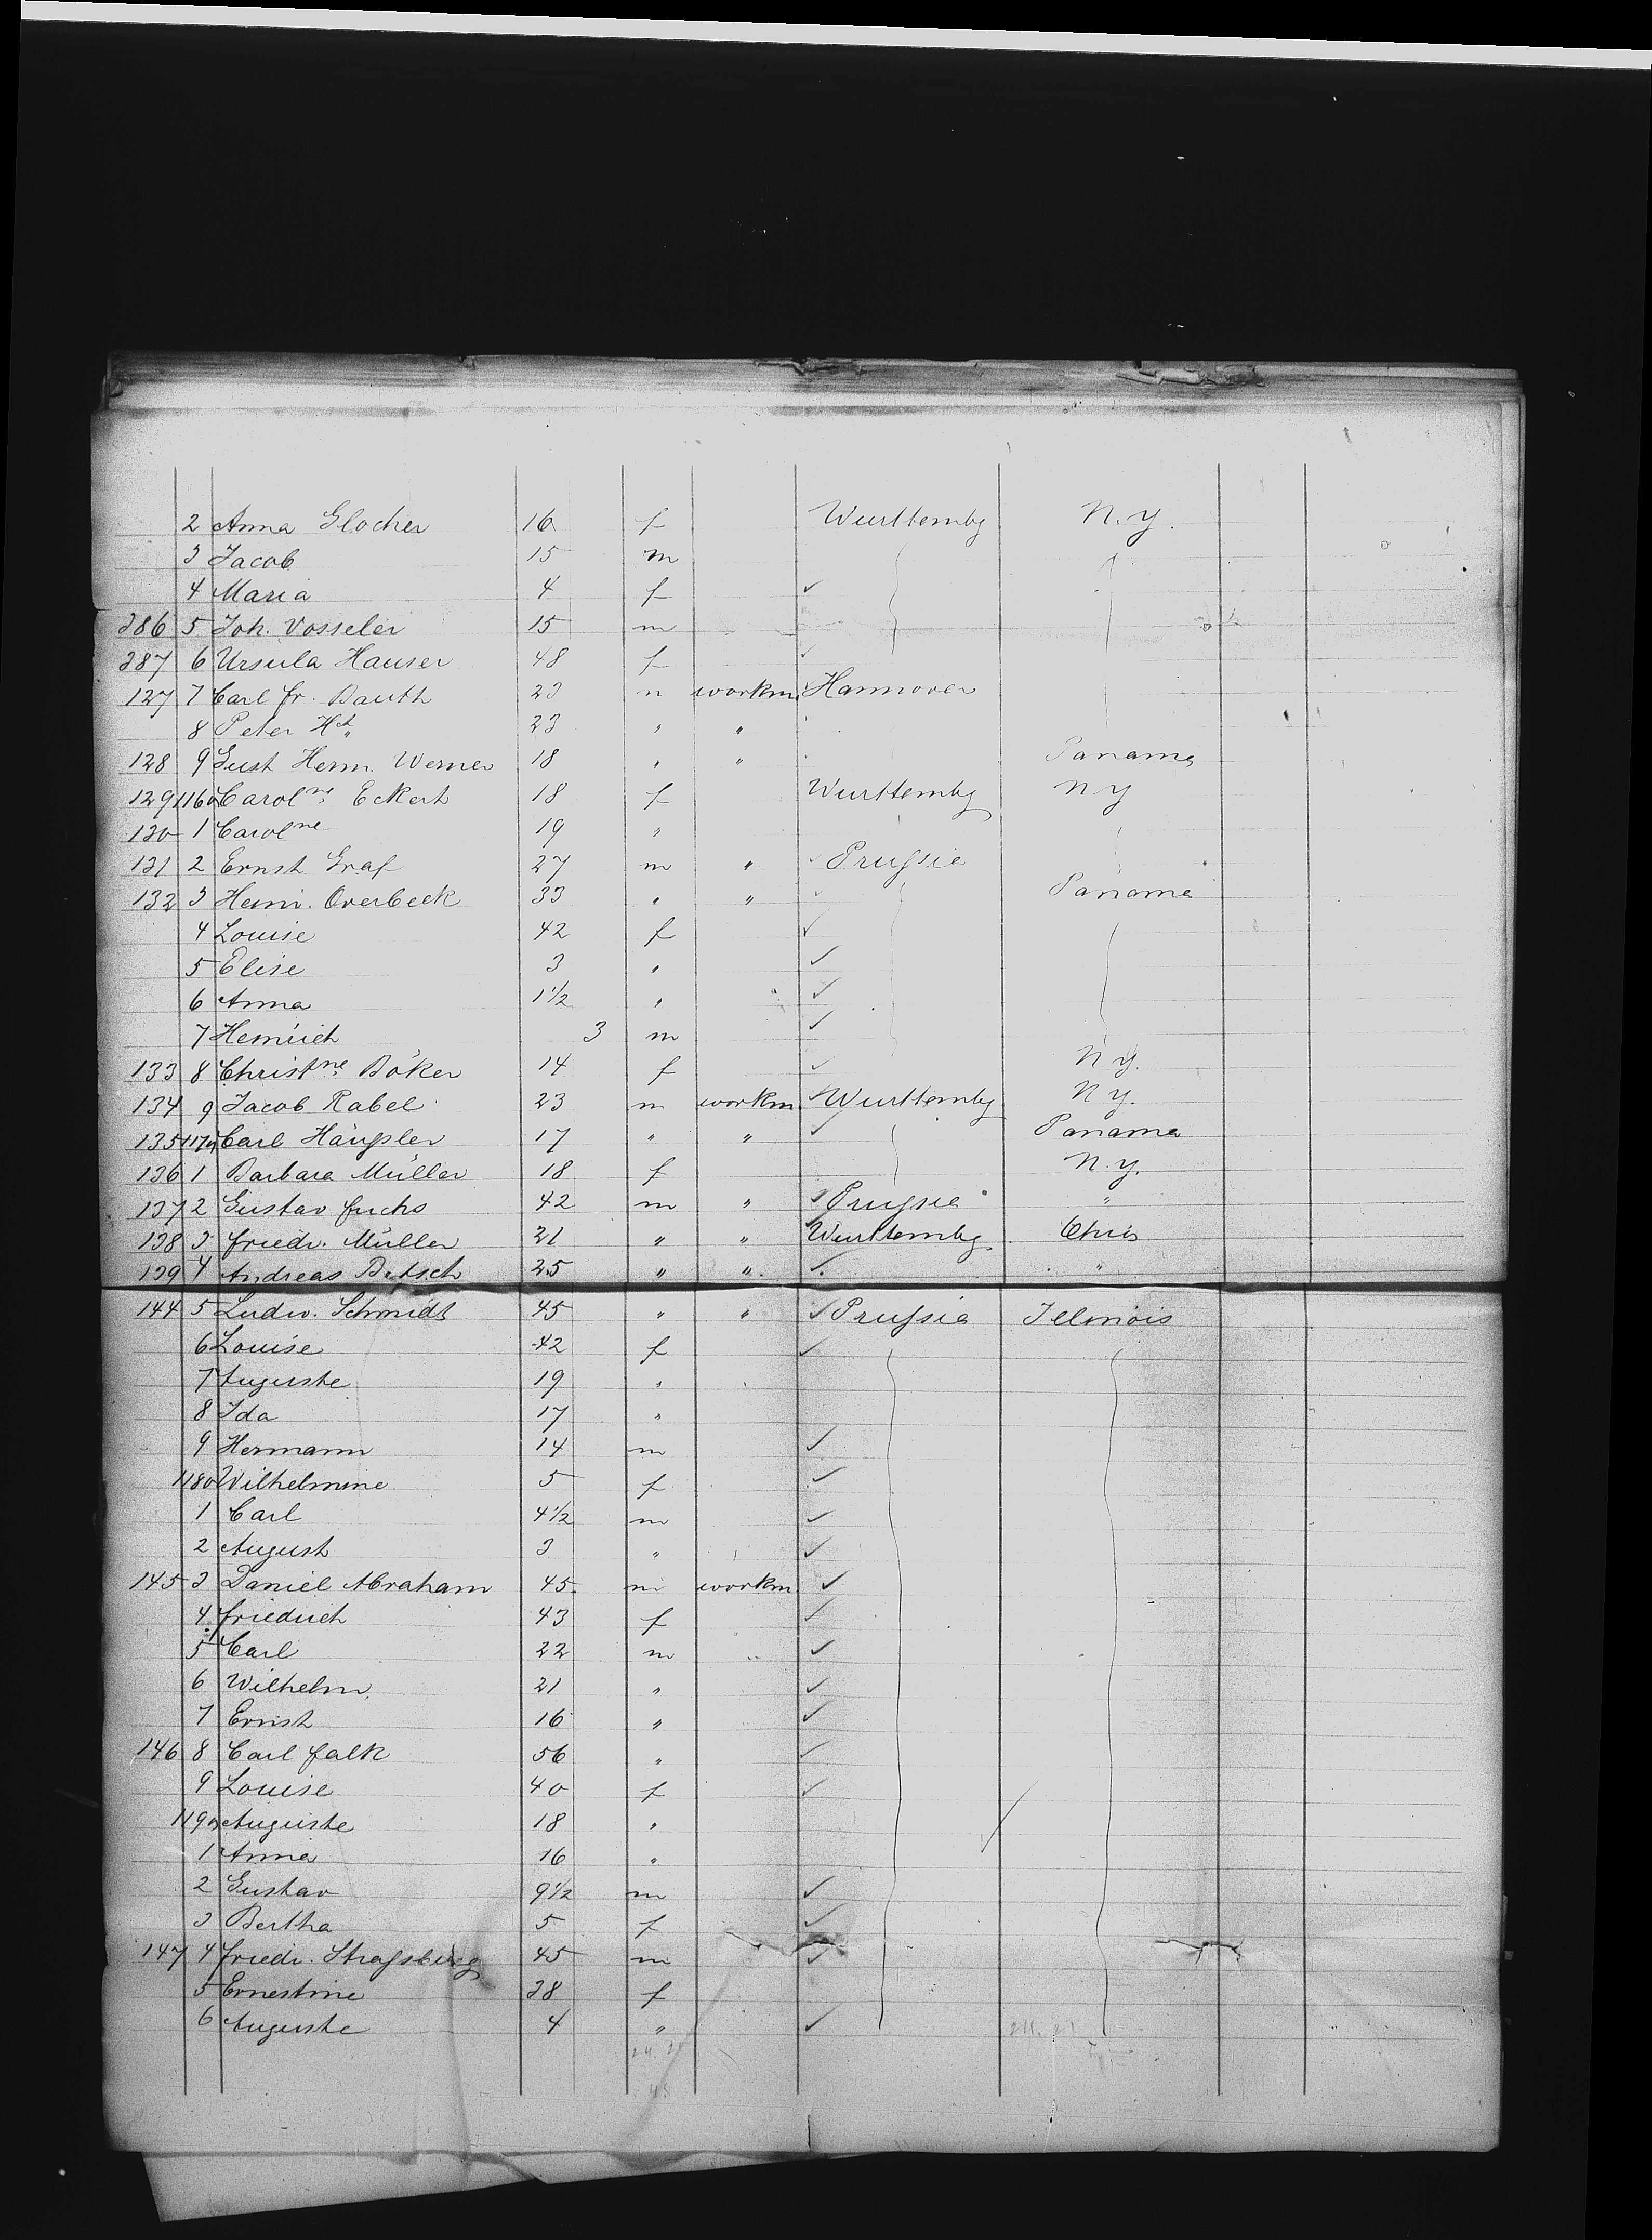 2 Anna Glocher 16 f Wurttembg N.Y.
3 Jacob 15 m
4 Maria 4 f ✓
286 5 Joh. Vosseler 15 m
287 6 Ursula Hauser 48 f ✓
127 7 Carl fr. Bauth 23 m workm Hannover
8 Peter 23 " "
128 9 Gust Herm. Werner 18 " " Panama
129 1160 Carolne Eckert 18 f Wurttembg N Y
130 1 Carolne 19 "
131 2 Ernst Graf 27 m " ✓ Prussia
132 3 Heinr. Overbeck 33 " " ✓ Panama
4 Louise 42 f ✓
5 Elise 3 " ✓
6 Anna 1 1/2 " ✓
7 Heinrich 3 m ✓
133 8 Christne Böker 14 f ✓ N Y.
134 9 Jacob Rabel 23 m workm ✓ Wurttembg N Y.
135 1170 Carl Häussler 17 " " ✓ Panama
136 1 Barbara Müller 18 f N.Y.
137 2 Gustav fuchs 42 m " ✓ Prussia "
138 3 friedr. Müller 21 " " Wurttembg Ohio
139 4 Andreas Betsch 25 " " ✓ "
144 5 Ludw. Schmidt 45 " " ✓ Prussia Illinois
6 Louise 42 f ✓
7 Auguste 19 "
8 Ida 17 "
9 Hermann 14 m ✓
1180 Wilhelmine 5 f ✓
1 Carl 4 1/2 m ✓
2 August 3 " ✓
145 3 Daniel Abraham 45 m workm ✓
4 friedrich 43 f ✓
5 Carl 22 m " ✓
6 Wilhelm 21 " ✓
7 Ernst 16 " ✓
146 8 Carl falk 56 " ✓
9 Louise 40 f ✓
1190 Auguste 18 "
1 Anna 16 "
2 Gustav 9 1/2 m ✓
3 Bertha 5 f ✓
147 4 friedr. Strassburg 45 m ✓
5 Ernestine 38 f
6 Auguste 4 " ✓